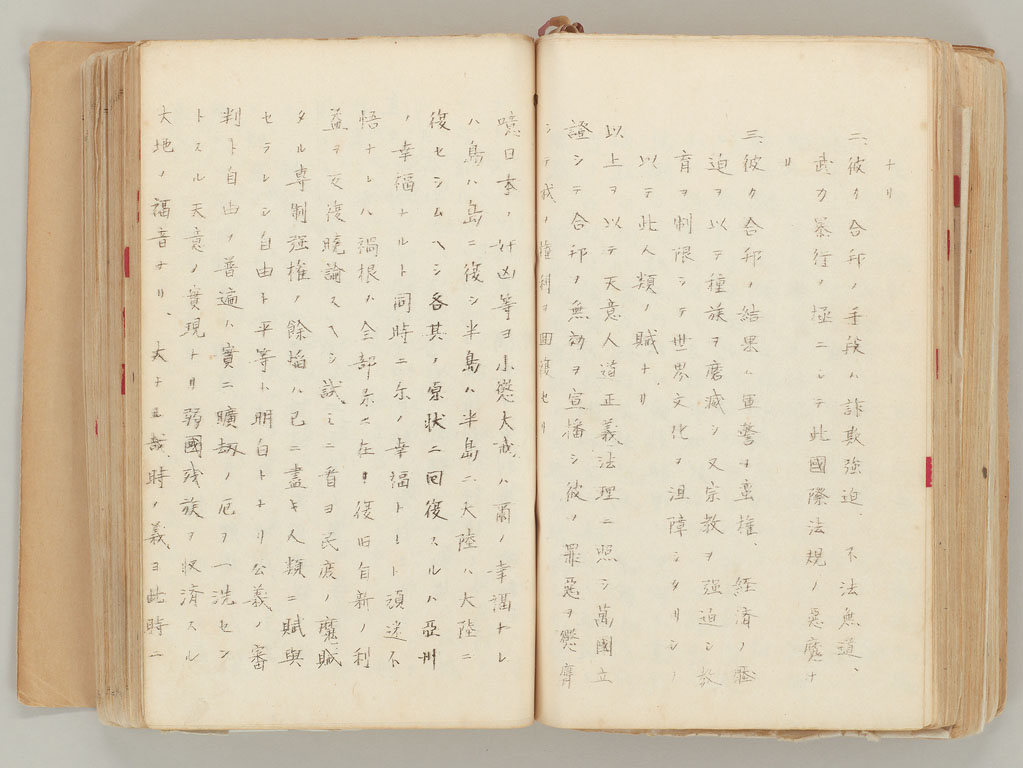 ナリ
二、彼カ合邦ノ手段ハ詐欺強迫、不法無道、
武力暴行ノ極ニシテ此國際法規ノ惡魔ナ
リ
三、彼カ合邦ノ結果ハ軍警ヲ蛮權、経済ノ壓
迫ヲ以テ種族ヲ磨滅シ又宗教ヲ强迫シ教
育ヲ制限シテ世界文化ヲ沮障シタリシ
以テ此人類ノ賊ナリ
以上ヲ以テ天意人道正義法理ニ照シ萬國立
證シテ合邦ノ無効ヲ宣播シ彼ノ罪惡ヲ懲膺
シテ我ノ權利ヲ囬復セリ
噫日本ノ奸凶等ヨ小懲大戒ハ爾ノ幸福ナレ
ハ島ハ島ニ復シ半島ハ半島ニ大陸ハ大陸ニ
復セシムヘシ各其ノ原状ニ回復スルハ亞卅
ノ幸福ナルト同時ニ尓ノ幸福トモト頑迷不
悟ナレハ禍根ハ全部尓ニ在リ復旧自新ノ利
益ヲ反復曉諭スヘシ試ミニ看ヨ民庶ノ魔賊
タル専制强權ノ餘焔ハ已ニ盡キ人類ニ賦與
セラレシ自由ト平等ト明白トナリ公義ノ審
判ト自由ノ普遍ハ實ニ曠劫ノ厄ヲ一洗セン
トスル天意ノ實現トリ弱國残族ヲ收済スル
大地ノ福音ナリ、大ナル哉、時ノ義、ヨ此時ニ